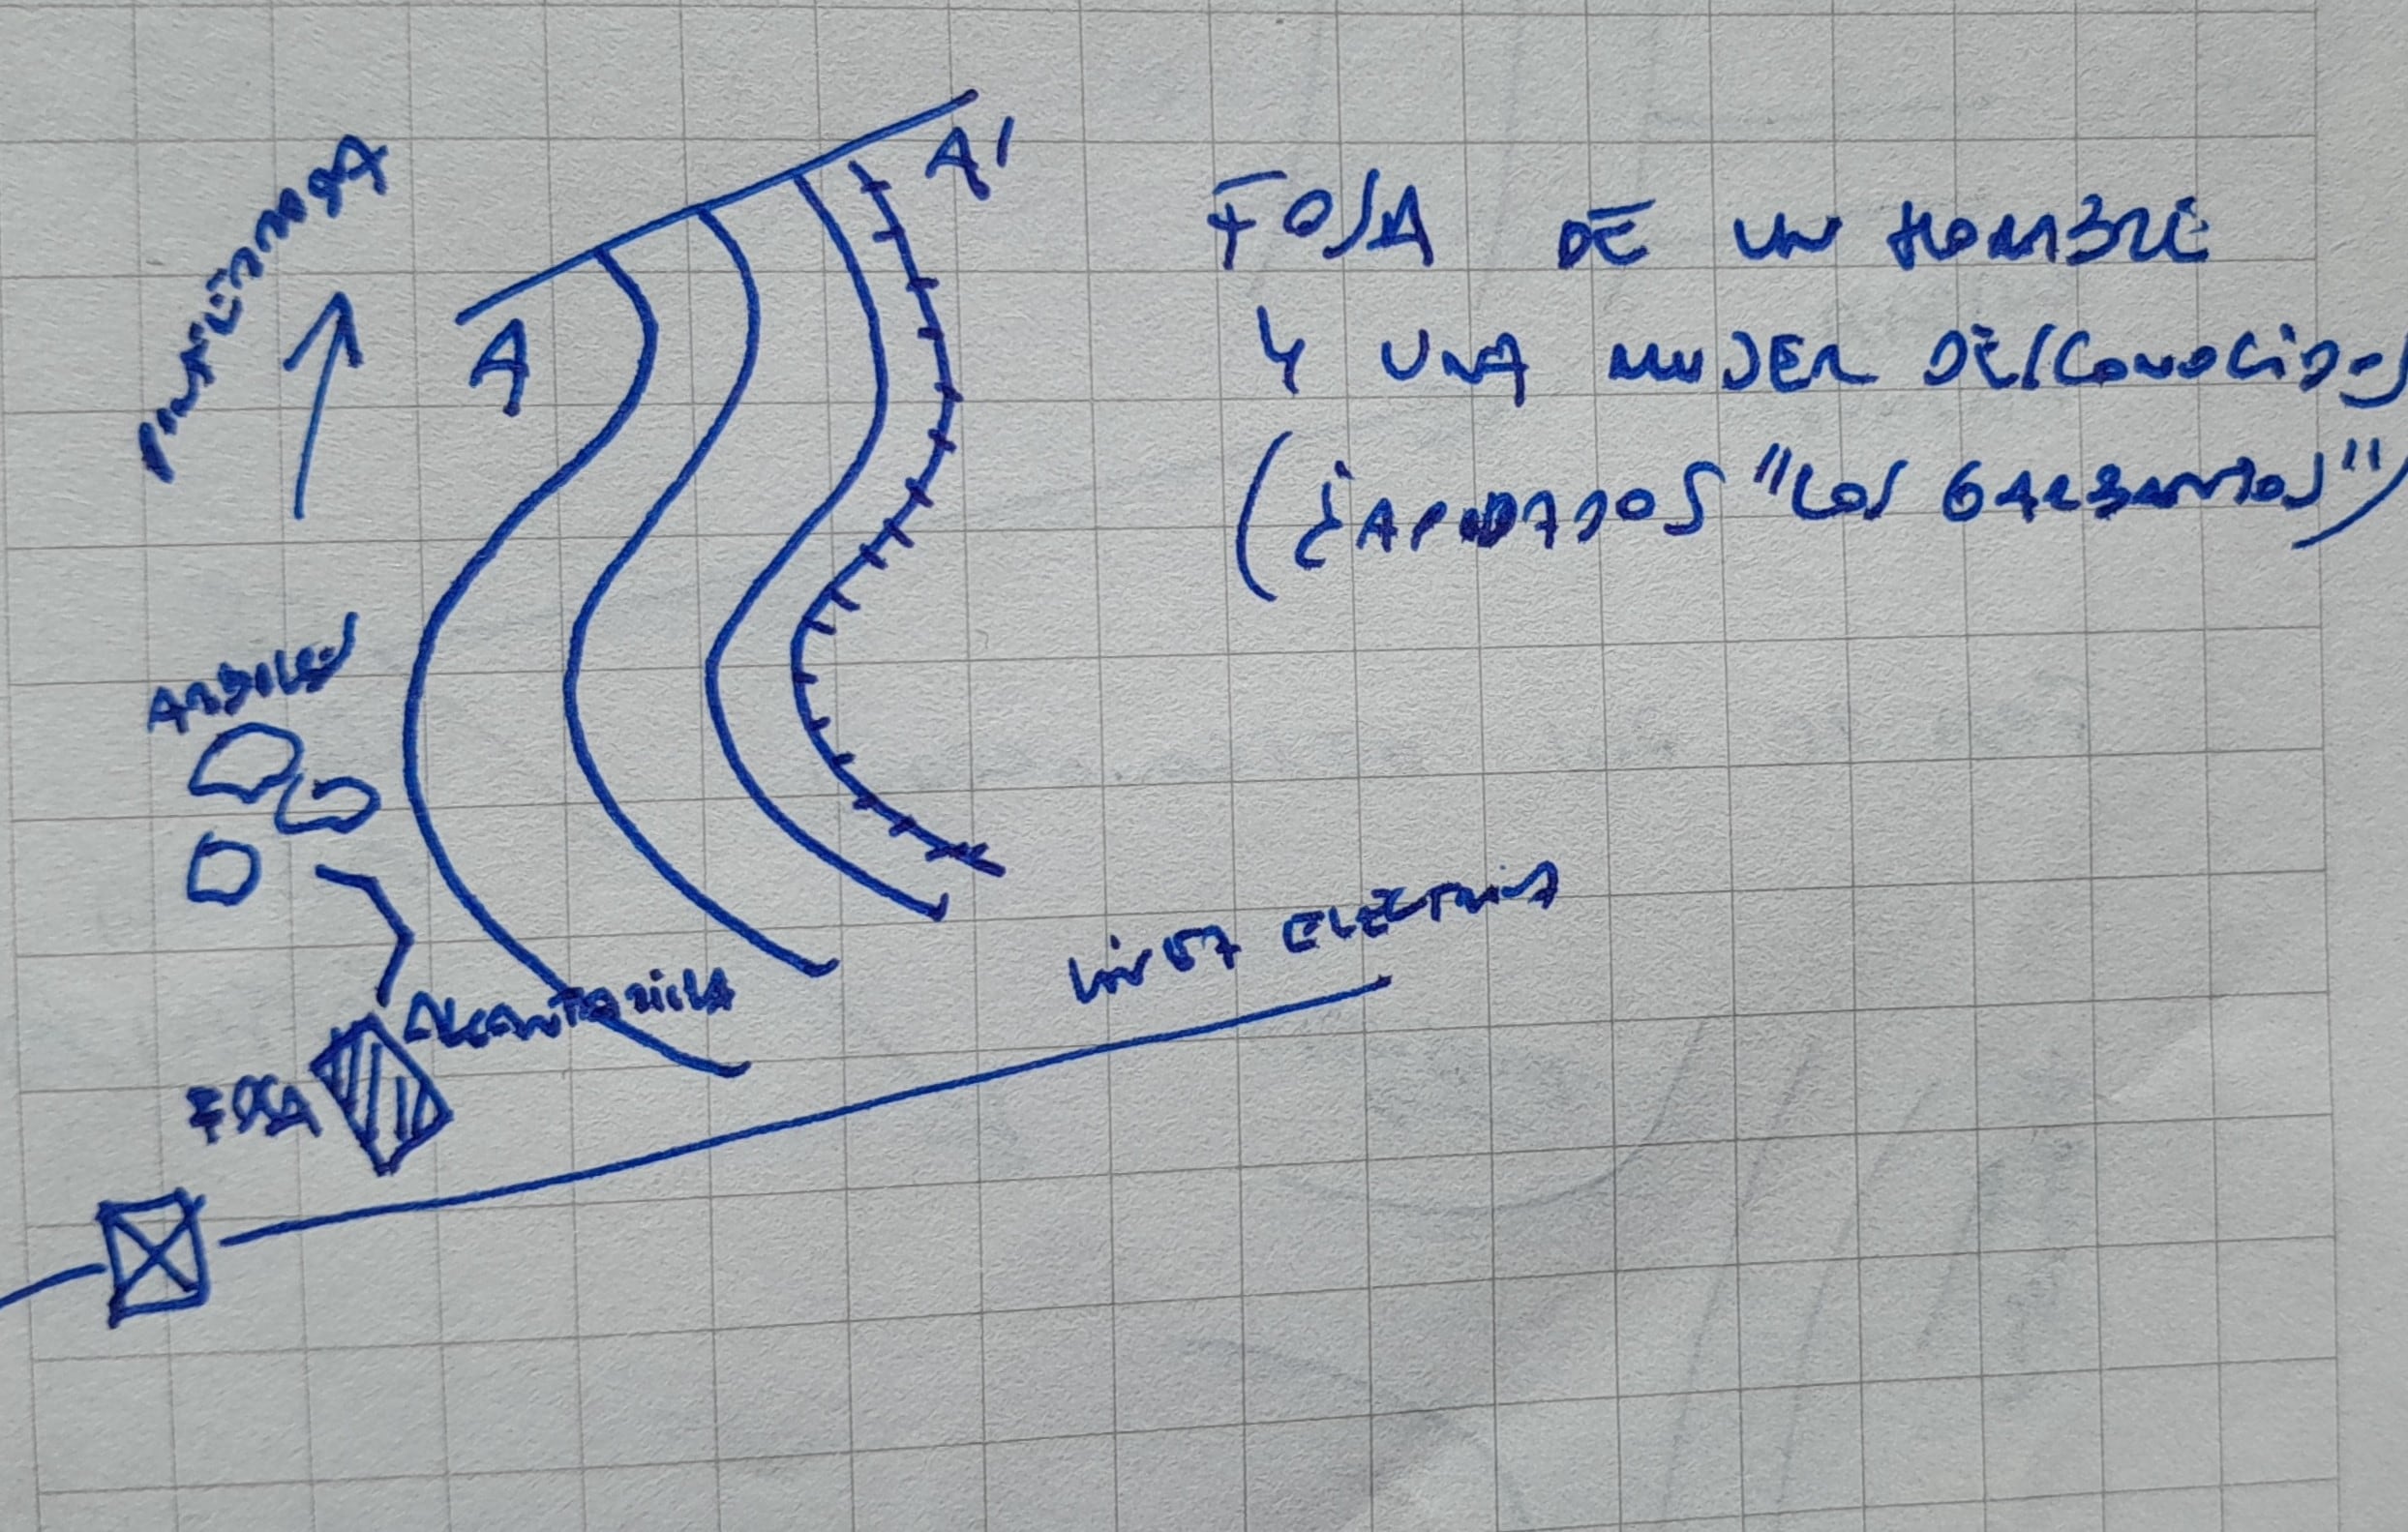 FOSA DE UN HOMBRE
Y UNA MUJER DESCONOCIDOS
(¿APODADOS "LOS GARBANZOS")
A'
A
ARBOLES
ALCANTARILLA
FOSA
LINEA ELECTRICA